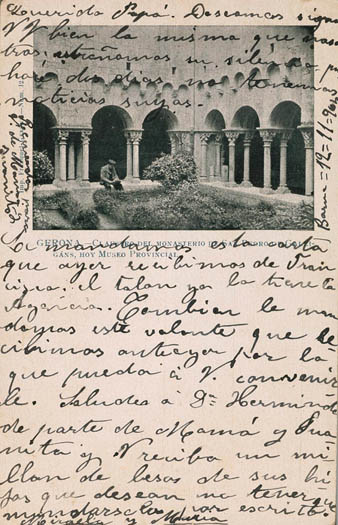 Querido Papá. Deseamos sigue
V. bien la misma que noso-
tros, extrañamos su silencio pues
hace dos dias no tenemos
noticias suyas.
Barna = 12 = 11 = 902
GERONA. – CLAUSTRO DEL MONASTERIO DE SAN PEDRO DE GALLI-
GANS, HOY MUSEO PROVINCIAL
esta carta
que ayer recibimos de Fran
cisca. El talon ya lo tiene la
Agencia. Tambien le man
damos este volante que re
cibimos anteayer por lo
que pueda á V. convenir
le. Saludos á Dª Herminia
de parte de Mamá y Jua
nita y V reciba un mi
llon de besos de sus hi
jas que desean no tener que
mandarselos por escrito
y Maria